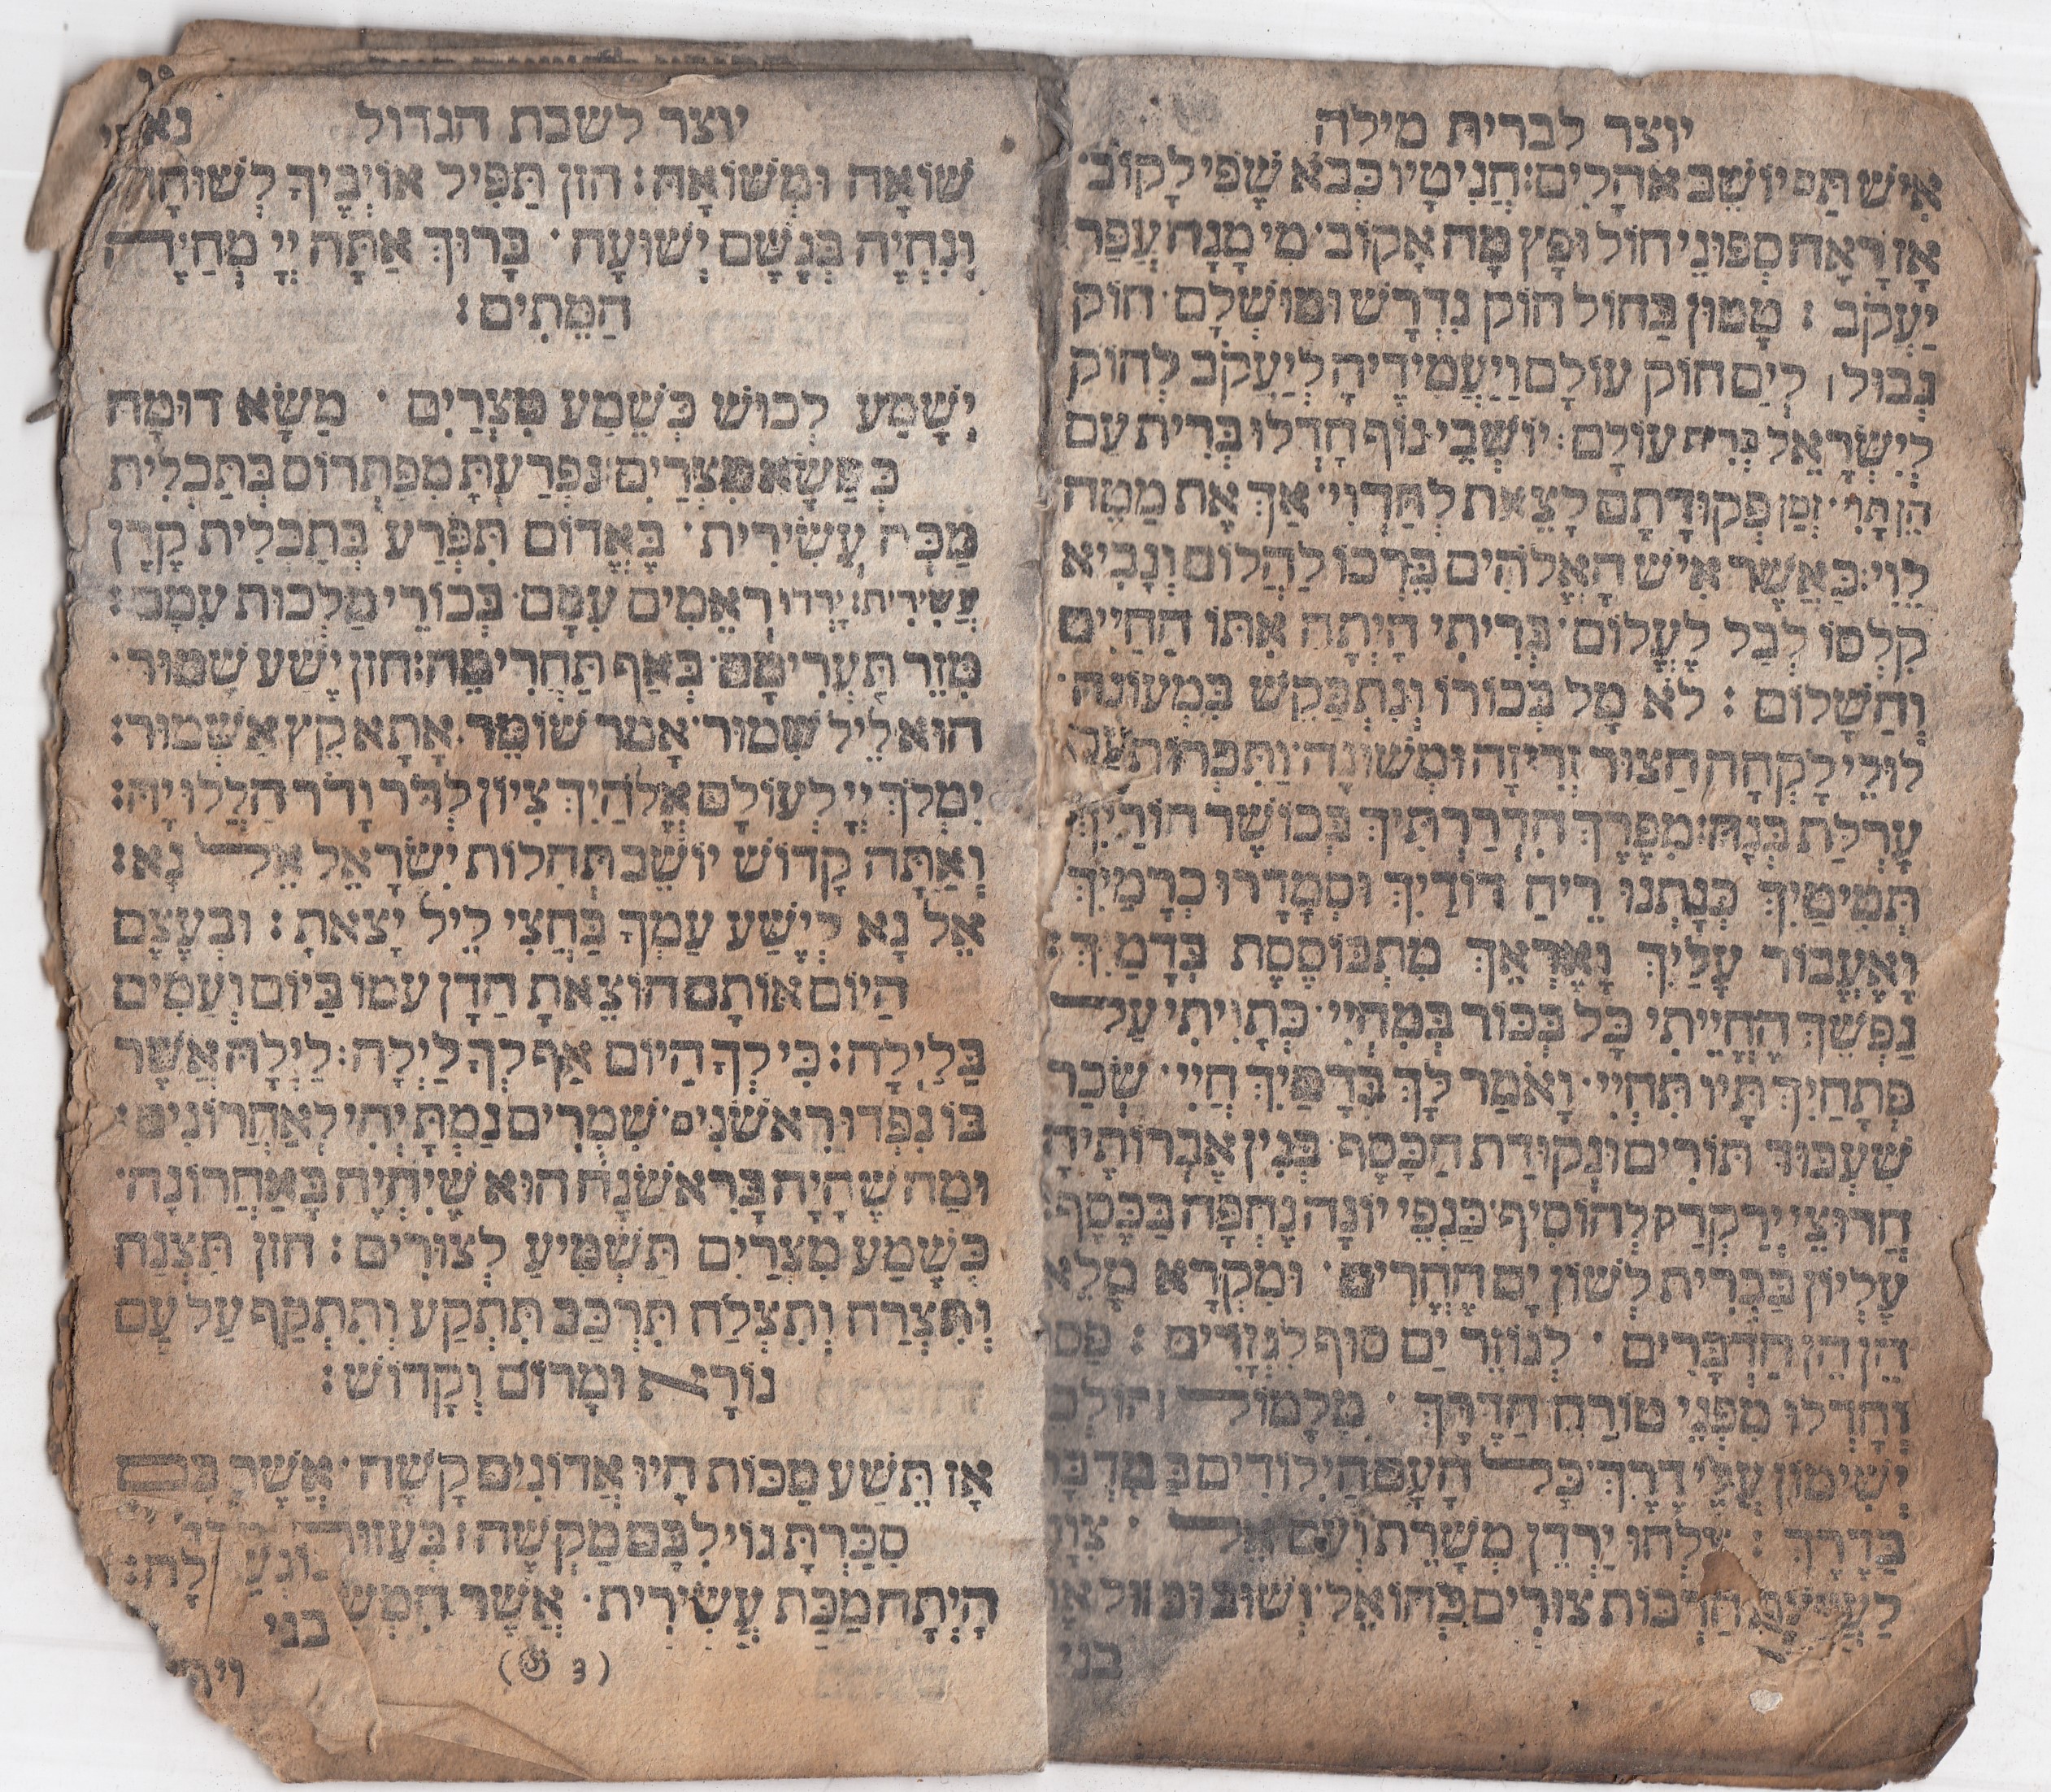 יוצר לברית מילה
אִישׁ תַּם יוֹשֵׁב אֹהָלִים: חֲנִיטָיו כְּבֹא שָׁפִּי לָקוֹב·
אָז רָאָה סְפוּנֵי חוֹל וּפָץ מָה אֶקּוֹב· מִי מָנָה עֲפַר
יַעֲקֹב : טָמוּן בַּחוֹל חוֹק נִדְרָשׁ וּמוּשְׁלָם· חוֹק
גְּבוּל לְיַם חוֹק עוֹלָם וַיַּעֲמִידֶיהָ לְיַעֲקֹב לְחוֹק
לְיִשְׂרָאֵל בְּרִית עוֹלָם: יוֹשְׁבֵי נוֹף חָדְלוּ בְּרִית עַם
זְמַן פְּקוּדָּתָם לָצֵאת אַךְ אֶת מַטֵּה
לֵוִי: כַּאֲשֶׁר אִישׁ הָאֱלֹהִים בֵּרְכוֹ לַהֲלוֹם וְנָבִיא
קִלְּסוֹ לְבַל לַעֲלוֹם· בְּרִיתִי הָיְתָה אִתּוֹ הַחַיִּים
וְהַשָּׁלוֹם : לֹא מָל בְּכוֹרוֹ וְנִתְבַּקֵּשׁ בִּמְעוֹנָהּ·
לוּלֵי לָקְחָה הַצּוּר זְרִיזָה וּמְשׁוּנָה·
עָרְלַת בְּנָהּ: מִפֶּרֶךְ הִדְרַרְתִּיךְ בְּכוֹשֶׁר הוֹרַיִךְ
כְּנָתְנוּ רֵיחַ דּוֹדַיִךְ וּסְמָדְרוּ כְרָמַיִךְ
וָאֶעֱבוֹר עָלַיִךְ וָאֶרְאֵךְ מִתְבּוֹסֶסֶת בְּדָמָיִךְ:
נַפְשֵׁךְ הֶחֱיֵיתִי כָּל בְּכוֹר בִּמְחִיִּי· כְּתָוִיתִי עַל
פְּתָחַיִךְ תָּיו תִּחְיִי· וָאֹמַר לָךְ בְּדָמַיִךְ חֲיִי· שְׂכַר
שִׁעְבּוּד תּוֹרִים וּנְקוּדַּת הַכָּסֶף· בְּנִין אֶבְרוֹתֶיהָ
חֲרוּצֵי יְרַקְרַק לְהוֹסִיף· כַּנְפֵי יוֹנָה נֶחְפָּה בַכָּסֶף:
עֶלְיוֹן כִּבְרִית לְשׁוֹן יָם הֶחֱרִים· וּמִקְרָא מָלֵא
הֵן הֵן הַדְּבָרִים · לְגוֹזֵר יַם סוּף לִגְזָרִים :
וְחָדְלוּ מִפְּנֵי טוֹרַח הַדֶּרֶךְ · מִלָּמוֹל
יְשִׁימוֹן עֲלֵי דֶרֶךְ· כָּל הָעָם הַיִּלּוֹדִים בַּמִּדְבָּר
בַּדָּרֶךְ : יַרְדֵּן מְשָׁרֵת וְעַם אֵל ·
חַרְבוֹת צוּרִים
בני
יוצר לשבת הגדול
שׁוֹאָה וּמְשׁוֹאָה: הון תַּפִּיל אוֹיְבֶיךָ לְשׁוּחָה
וְנִחְיֶה בְּגֶשֶׁם יְשׁוּעָה · בָּרוּךְ אַתָּה יְיָ מְחַיֵּה
הַמֵּתִים:
יִשָּׁמַע לְכוּשׁ כְּשֵׁמַע מִצְרַיִם · מַשָּׂא דוּמָה
כְּמַשָּׂא מִצְרַיִם: נִפְרַעְתָּ מִפַּתְרוֹס בְּתַכְלִית
מַכָּה עֲשִׂירִית· בֶּאֱדוֹם תִּפָּרַע בְּתַכְלִית קֶרֶן
עֲשִׂירִית: יָרְדוּ רְאֵמִים עִמָּם· בְּכוֹרֵי מַלְכוּת עִמָּם:
בְּאַף תַּחֲרִימֵם: חון יֶשַׁע שִׁמּוּר·
הוּא לֵיל שִׁמּוּר· אָמַר שׁוֹמֵר· אָתָא קֵץ אַשְׁמוּר:
יִמְלֹךְ יְיָ לְעוֹלָם אֱלֹהַיִךְ צִיּוֹן לְדֹר וָדֹר הַלְלוּיָהּ:
וְאַתָּה קָדוֹשׁ יוֹשֵׁב תְּהִלּוֹת יִשְׂרָאֵל אֵל נָא:
אֵל נָא לְיֶשַׁע עַמְּךָ כַּחֲצִי לֵיל יָצָאתָ: וּבְעֶצֶם
הַיּוֹם אוֹתָם הוֹצֵאתָ הַדָּן עַמּוֹ בַּיּוֹם וְעַמִּים
בַּלַּיְלָה: כִּי לְךָ הַיּוֹם אַף לְךָ לַיְלָה: לַיְלָה אֲשֶׁר
בּוֹ נִפְדּוּ רִאשׁוֹנִים· שִׁמֻּרִים נַמְתָּ יְהִי לְאַחֲרוֹנִים:
וּמַה שֶּׁהָיָה בָּרִאשֹׁנָה הוּא שֶׁיִּהְיֶה בָּאַחֲרוֹנָה·
כְּשֵׁמַע מִצְרַיִם תַּשְׁמִיעַ לְצוּרִים: חון תִּצְנַח
וְתִצְרַח וְתִצְלַח תִּרְכַּב תִּתְקַע וְתִתְקַף עַל עָם
נוֹרָא וּמָרוֹם וְקָדוֹשׁ:
אָז תֵּשַׁע מַכּוֹת הָיוּ אֲדוֹנִים קָשֶׁה· אֲשֶׁר בָּם
סִכַּרְתָּ גּוֹי לִבָּם מַקְשֶׁה:
הָיְתָה מַכַּת עֲשִׂירִית· אֲשֶׁר
בני